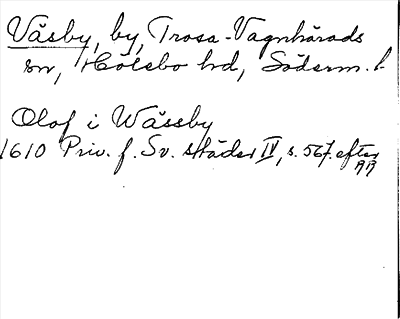 Våsby, by, Trosa-Vagnhärads
sn, Hölebo hd, Söderm. l.
Olof i Wåssby
1610 Priv. f. Sv. städer IV, s. 567. efter
RA